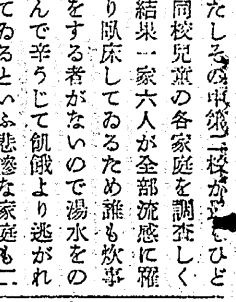 たしその中第二校が最もひど
同校児童の各家庭を調査しく
結果一家六人が全部流感に罹
り臥床してゐるため誰も炊事
をする者がないので湯水をの
んで辛うじて飢餓より逃がれ
てゐるといふ悲惨な家庭も一二